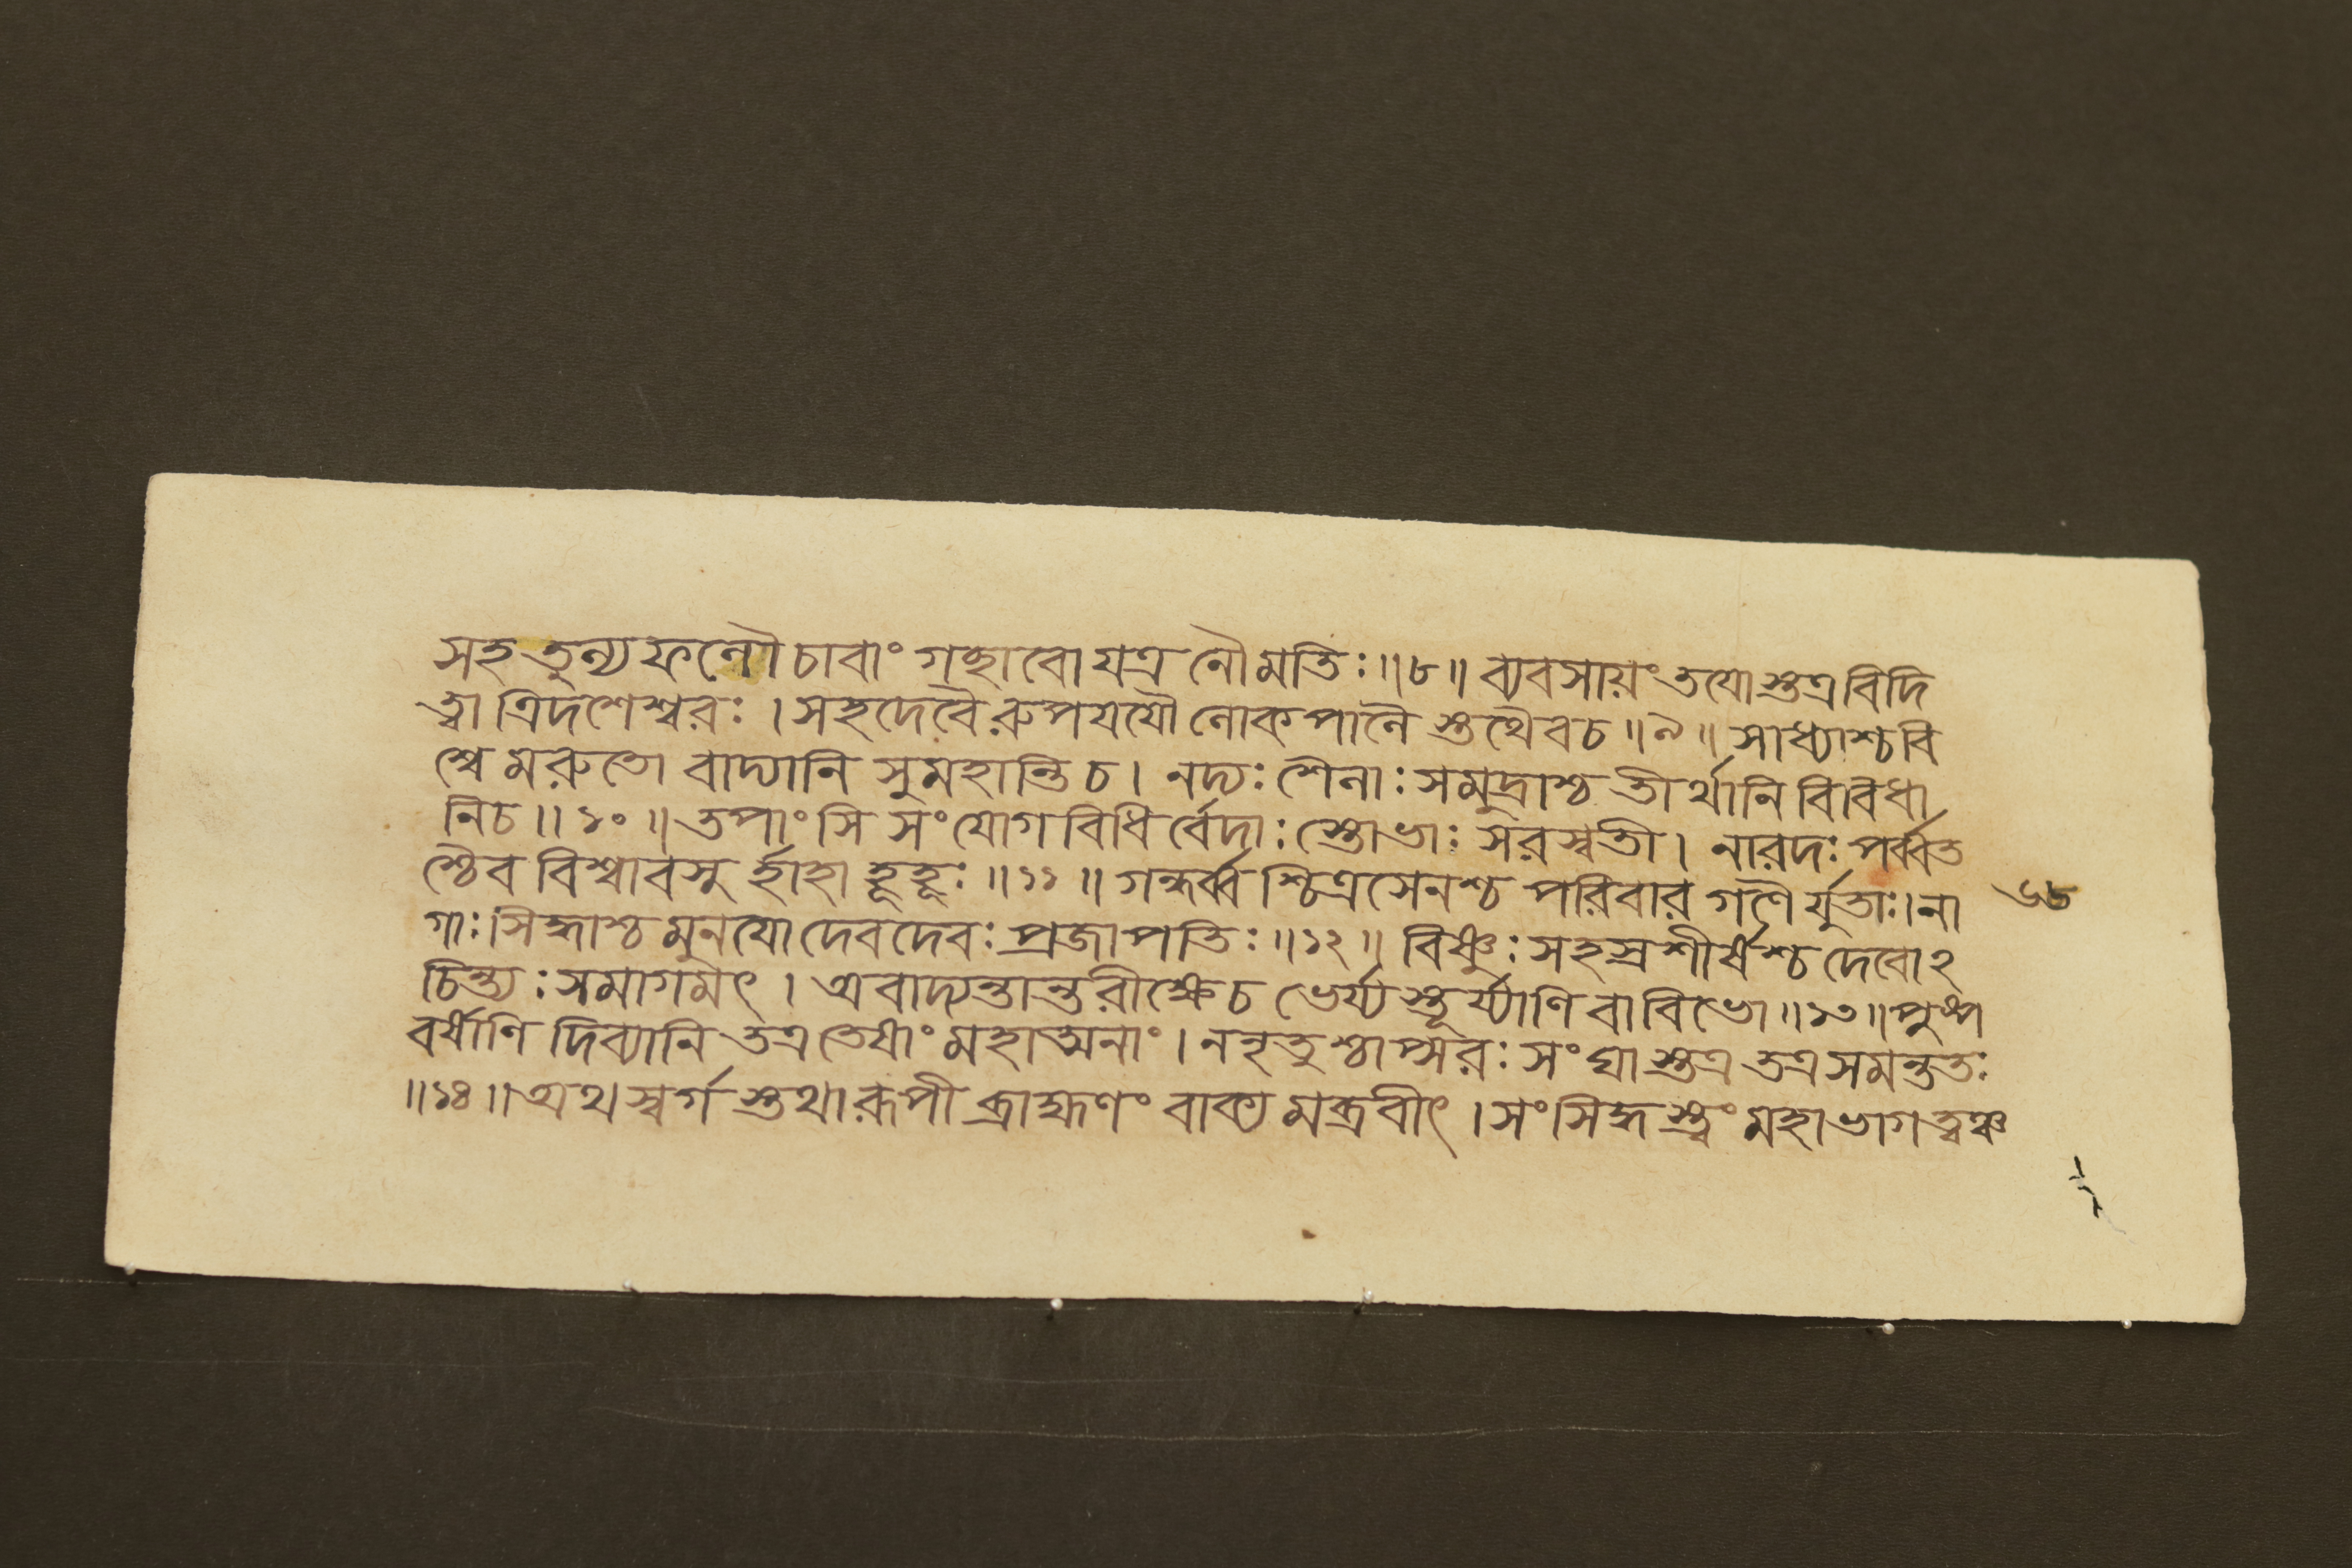 সহ তুল্য ফলৌ চাবাং গচ্ছাবো যত্র নৌ মতিঃ ॥৮॥ ব্যবসায়ং তযো স্তত্র বিদি
ত্বা ত্রিদশেশ্বরঃ । সহ দেবৈ রুপযযৌ লোকপালৈ স্তথৈবচ ॥৯॥ সাধ্যাশ্চ বি
শ্বে মরুতো বাদ্যানি সুমহান্তি চ । নদ্যঃ শৈলাঃ সমুদ্রাশ্চ তীর্থানি বিবিধা
নিচ ॥১০॥ তপাংসি সংযোগবিধি র্বেদাঃ স্তোভাঃ সরস্বতী । নারদঃ পর্ব্বত
শ্চৈব বিশ্বাবসু র্হাহা হূহূঃ ॥১১॥ গন্ধর্ব্ব শ্চিত্রসেনশ্চ পরিবার গণৈ র্যুতাঃ । না
গাঃ সিদ্ধাশ্চ মুনযো দেবদেবঃ প্রজাপতিঃ ॥১২॥ বিষ্ণুঃ সহস্রশীর্ষশ্চ দেবোঽ
চিন্ত্যঃ সমাগমৎ । অবাদ্যন্তান্তরীক্ষেচ ভের্য্য স্তূর্য্যাণি বা বিভো ॥১৩॥ পুষ্প
বর্ষাণি দিব্যানি তত্র তেষাং মহাত্মনাং । ননৃতু শ্চাপ্সরঃ সংঘা স্তত্র তত্র সমন্ততঃ
॥১৪॥ অথ স্বর্গ স্তথা রূপী ব্রাহ্মণং বাক্য মব্রবীৎ । সংসিদ্ধ স্ত্বং মহাভাগ ত্বঞ্চ
৬৮